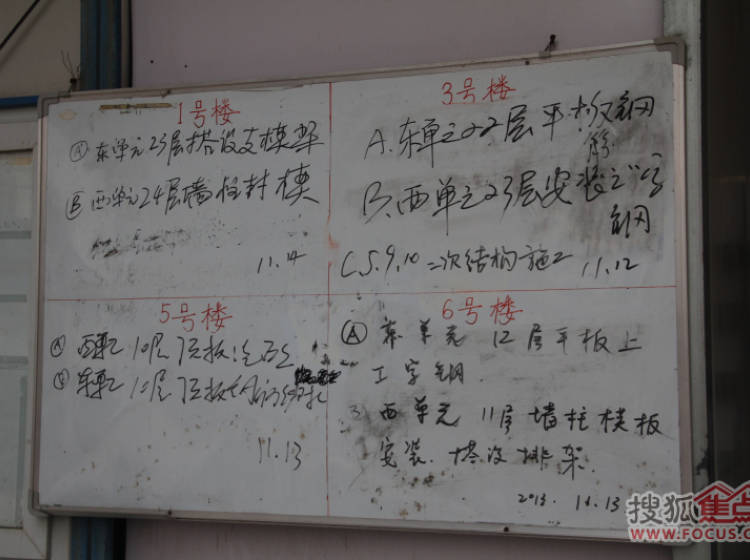 1号楼
Ⓐ 东单元23层搭设支模架
Ⓑ 西单元24层墙柱封模
11.14
3号楼
A.东单元22层平板钢
筋
B.西单元23层安装工字
钢
C.5.9.10二次结构施工
11.12
5号楼
Ⓐ 西单元10层顶板
东单元12层顶板
11.13
6号楼
Ⓐ 东单元 12层平板上
工字钢.
西单元 11层墙柱模板
安装.搭设排架.
2013. 11.13
搜狐焦点
www.FOCUS.c